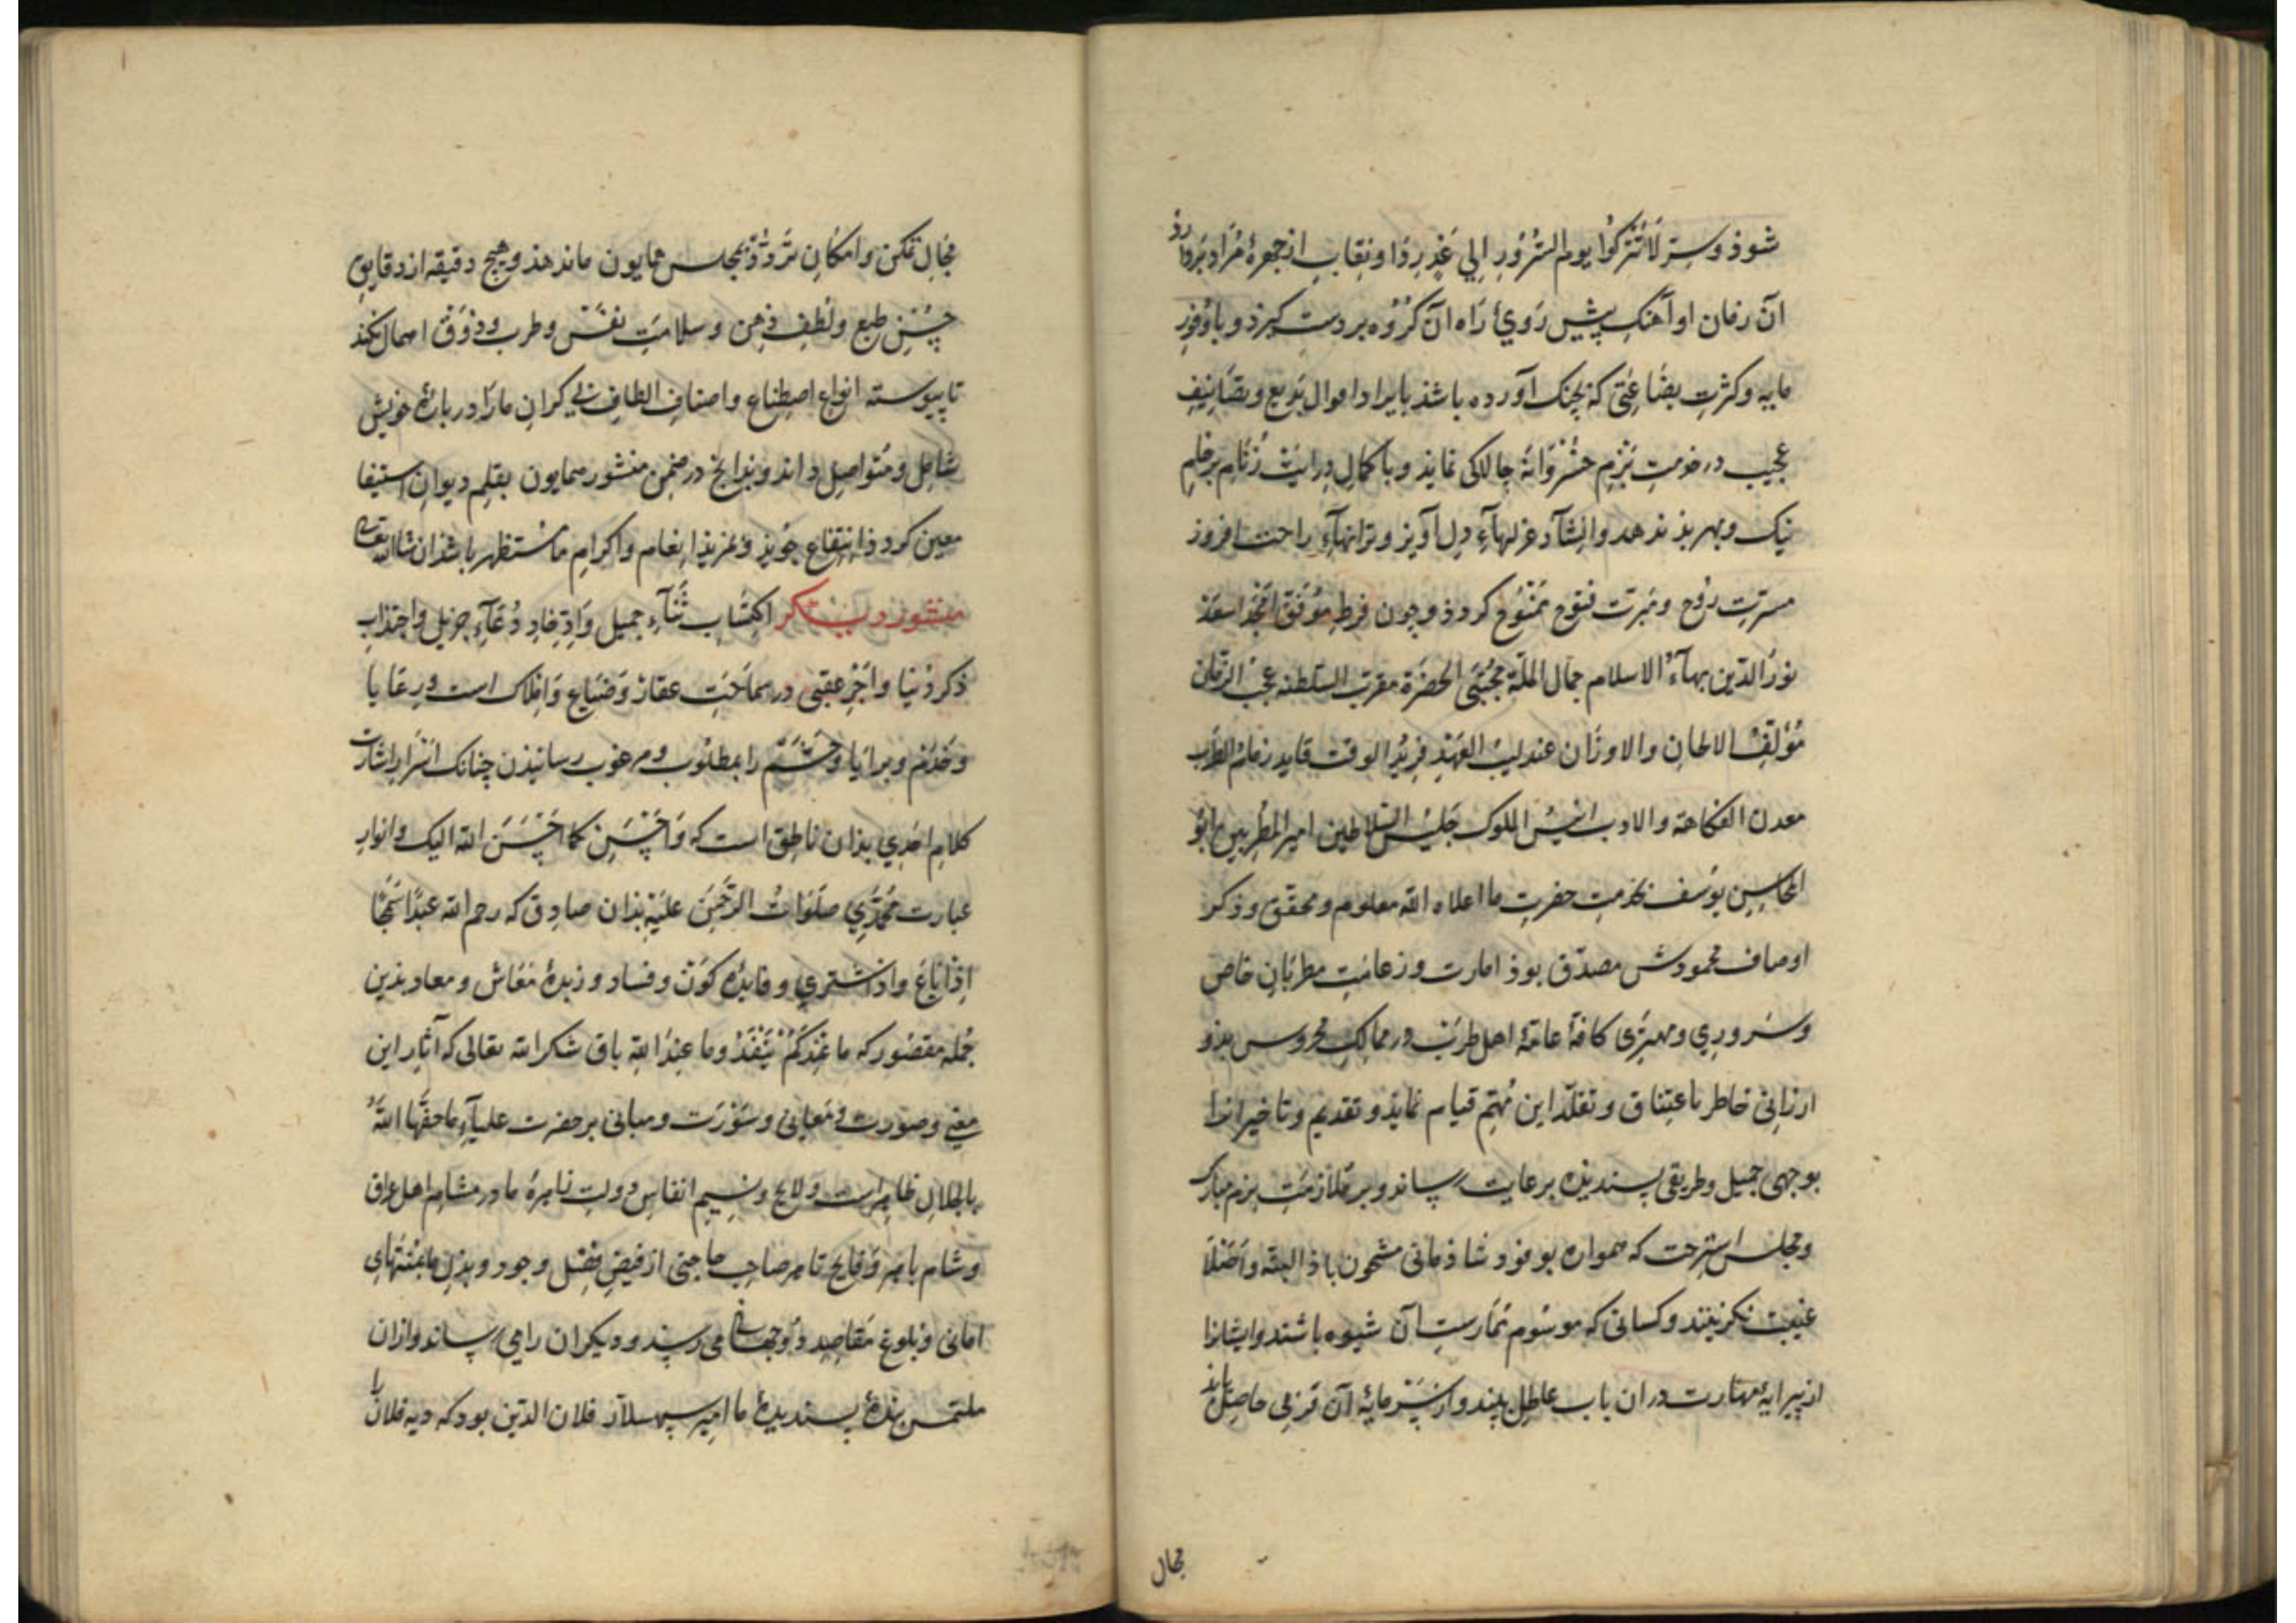 شوذ وسِتر لَا تَتْرُكُوا يوم السُّرُورِ اِلي غَدٍ رذا و نِقابِ از چهرهٔ مُراد بَردارذ
آنَ زمان او آهنکِ پیش رَوئ رَاه آنَ کَرُوه بر دست کیرذ و باوُفورِ
مایه و کثرتِ بضَاعَتی که بچنک آورده باشذ بایراد اموال بَدیع و تصَانیفِ
عجیب در خدمتِ بَزمِ خسْرَوَانهٔ چالاکی نمایذ و با کمالِ دِرایَت
نیک و بهر بذ ندهد و اِنشآدِ غزلهآءِ دِل آویز و ترانهآءِ راحت افروز
مسرّتِ رَوح و مَبرّتِ فتوح مَمْنُوح کردذ و چون فرطِ
نورُ الدّین بهآءُ الاسلام جمال الملّة مُجْتَبَی الحَضْرَة مقرب السّلطنه عجبُ الزّمان
مُؤلِّفُ الالحانِ والاوزَان عندلیبُ العَهْدِ فرِیْدُ الوقت قاید زمام الطَّرب
معدن الفکاهة والادب انیسُ الملوک جَلیْسُ السّلاطین امیر المُطربین ابُو
المحاسِنِ یوسف بخدمتِ حضرتِ ما اعلاه الله معلوم و محقّق و ذکر
اوصاف محمودش مصدّق بوذ امارت و زعامتِ مطربَانِ خاص
و سَروري و مهترَی کافهٔ عامّهٔ اهل طرَب در ممالکِ محروس بذو
ارزانی خاطر باعتِناق و تقلّد این مُهّم قیام نمایذ و تقدیم و تاخیر آنرا
بوجهی جمیل و طریقی پسندیذه برعایت رساند و بر مُلازمَتِ بزم مبارک
و مجلس استرحت که همواره بوفود شاذمانی مشحون باذ البتّه و اَصْلاً
غیبت نکزینند و کسانی که موسُوم مُمَارستِ آن شیوه باشند و ایشانرا
از پیرایهٔ مهارت در ان باب عاطِل بیند و از سَرمایهٔ آن حاصِل یابذ
مجال
مجَالِ تمکن و امکانِ تَردُّدْ بمجلس همایون ماندهذ و هیچ دقیقه از دقایقِ
حُسْنِ طبع و لُطفِ ذِهن و سلامتِ نفسْ و طرب و ذوَق اهمال نکند
تا پیوسته انواع اصطِناع و اصنافِ الطافِ بی کرانِ مارَا در بارهٔ خویش
شامِل و مُتواصِل داند و بذانچ در ضِمْن منشور همایون بقلِم دیوانِ استیفا
معین کردذ انتِفاع جویذ و بمزیذِ اِنعام و اکرامِ ما مُسْتظهر باشذ ان شاالله تعالی
منشور دیکر اکتِسابِ ثَنآءِ جمیل وَ اِدّخارِ دُعَآءِ جزیل و اجتذابِ
ذکر دُنیا و اَجْرِ عقبی در سماحَتِ عقار و َضیَاع وَ اِملاک است و رِعَایا
و خَدَمْ و برَایَا و حَشَمْ را بمطلُوب و مرغوب رسانیذن چنانک اسْرَارِ اِشارت
کلامِ احَدِي بذان ناطق است که وَ اَحْسِن کما اَحْسَنَ الله الیک و انوارِ
عبارت مُحَمَّدِي صلَوَاتُ الرَّحْمٰن علَیْهِ بذان صادق که رحم الله عبدًا سَمْحًا
اِذَا بَاعَ و اذ اشتري و فایدهٔ کَوْن و فساد و زبدهٔ مَعَاش و معاد بذین
جُمله مقصُور که ما عِنْدَکُمْ یَنْفَدُ و ما عِندَ الله باق شکر الله تعالی که آثارِ این
معنی و صورت و مَعَانی و سَورَت و مبانی بر حضرت علیآءِ ما حفَّهَا اللهُ
بالجلالِ ظاهرَاست و لایح و نسِیْمِ انفاسِ دولتِ ما در مشامِ اهل عراق
و شام باهِر و َفایح تا هر صاحبِ حاجتی از فیضِ فضْل و جود و بذلِ ما بمُنْتهَاءِ
امانی و بُلوغِ مَقاصِد می رسند و دیکران را می رساند و ازان
ملتمس بندهٔ پسندیدهٔ ما امیر سپهسلار فلان الدّین بود که دیه فلان را